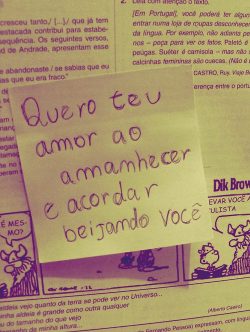 cresceu tanto,/ [...]./ que já tem
destacada contribui para estabe-
equência. Os seguintes versos,
nd de Andrade, apresentam esse
e abandonaste / se sabias que eu
as que eu era fraco."
2. Leia com atenção o texto.
[Em Portugal], você poderá ter algun
entrar numa loja de roupas desconhecen
da língua. Por exemplo, não adianta pe
nos – peça para ver os fatos. Paletó é
peúgas. Suéter é camisola – mas não
calcinhas femininas são cuecas. (Não é
CASTRO, Ruy. Viaje B
erença entre o portu
Quero teu
amor ao
amanhecer
e acordar
beijando você
Dik Brow
É MES-
MO?
aldeia vejo quanto da terra se pode ver no Universo...
inha aldeia é grande como outra qualquer
u do tamanho do que vejo
tamanho de minha altura...
(Alberto Caeiro)